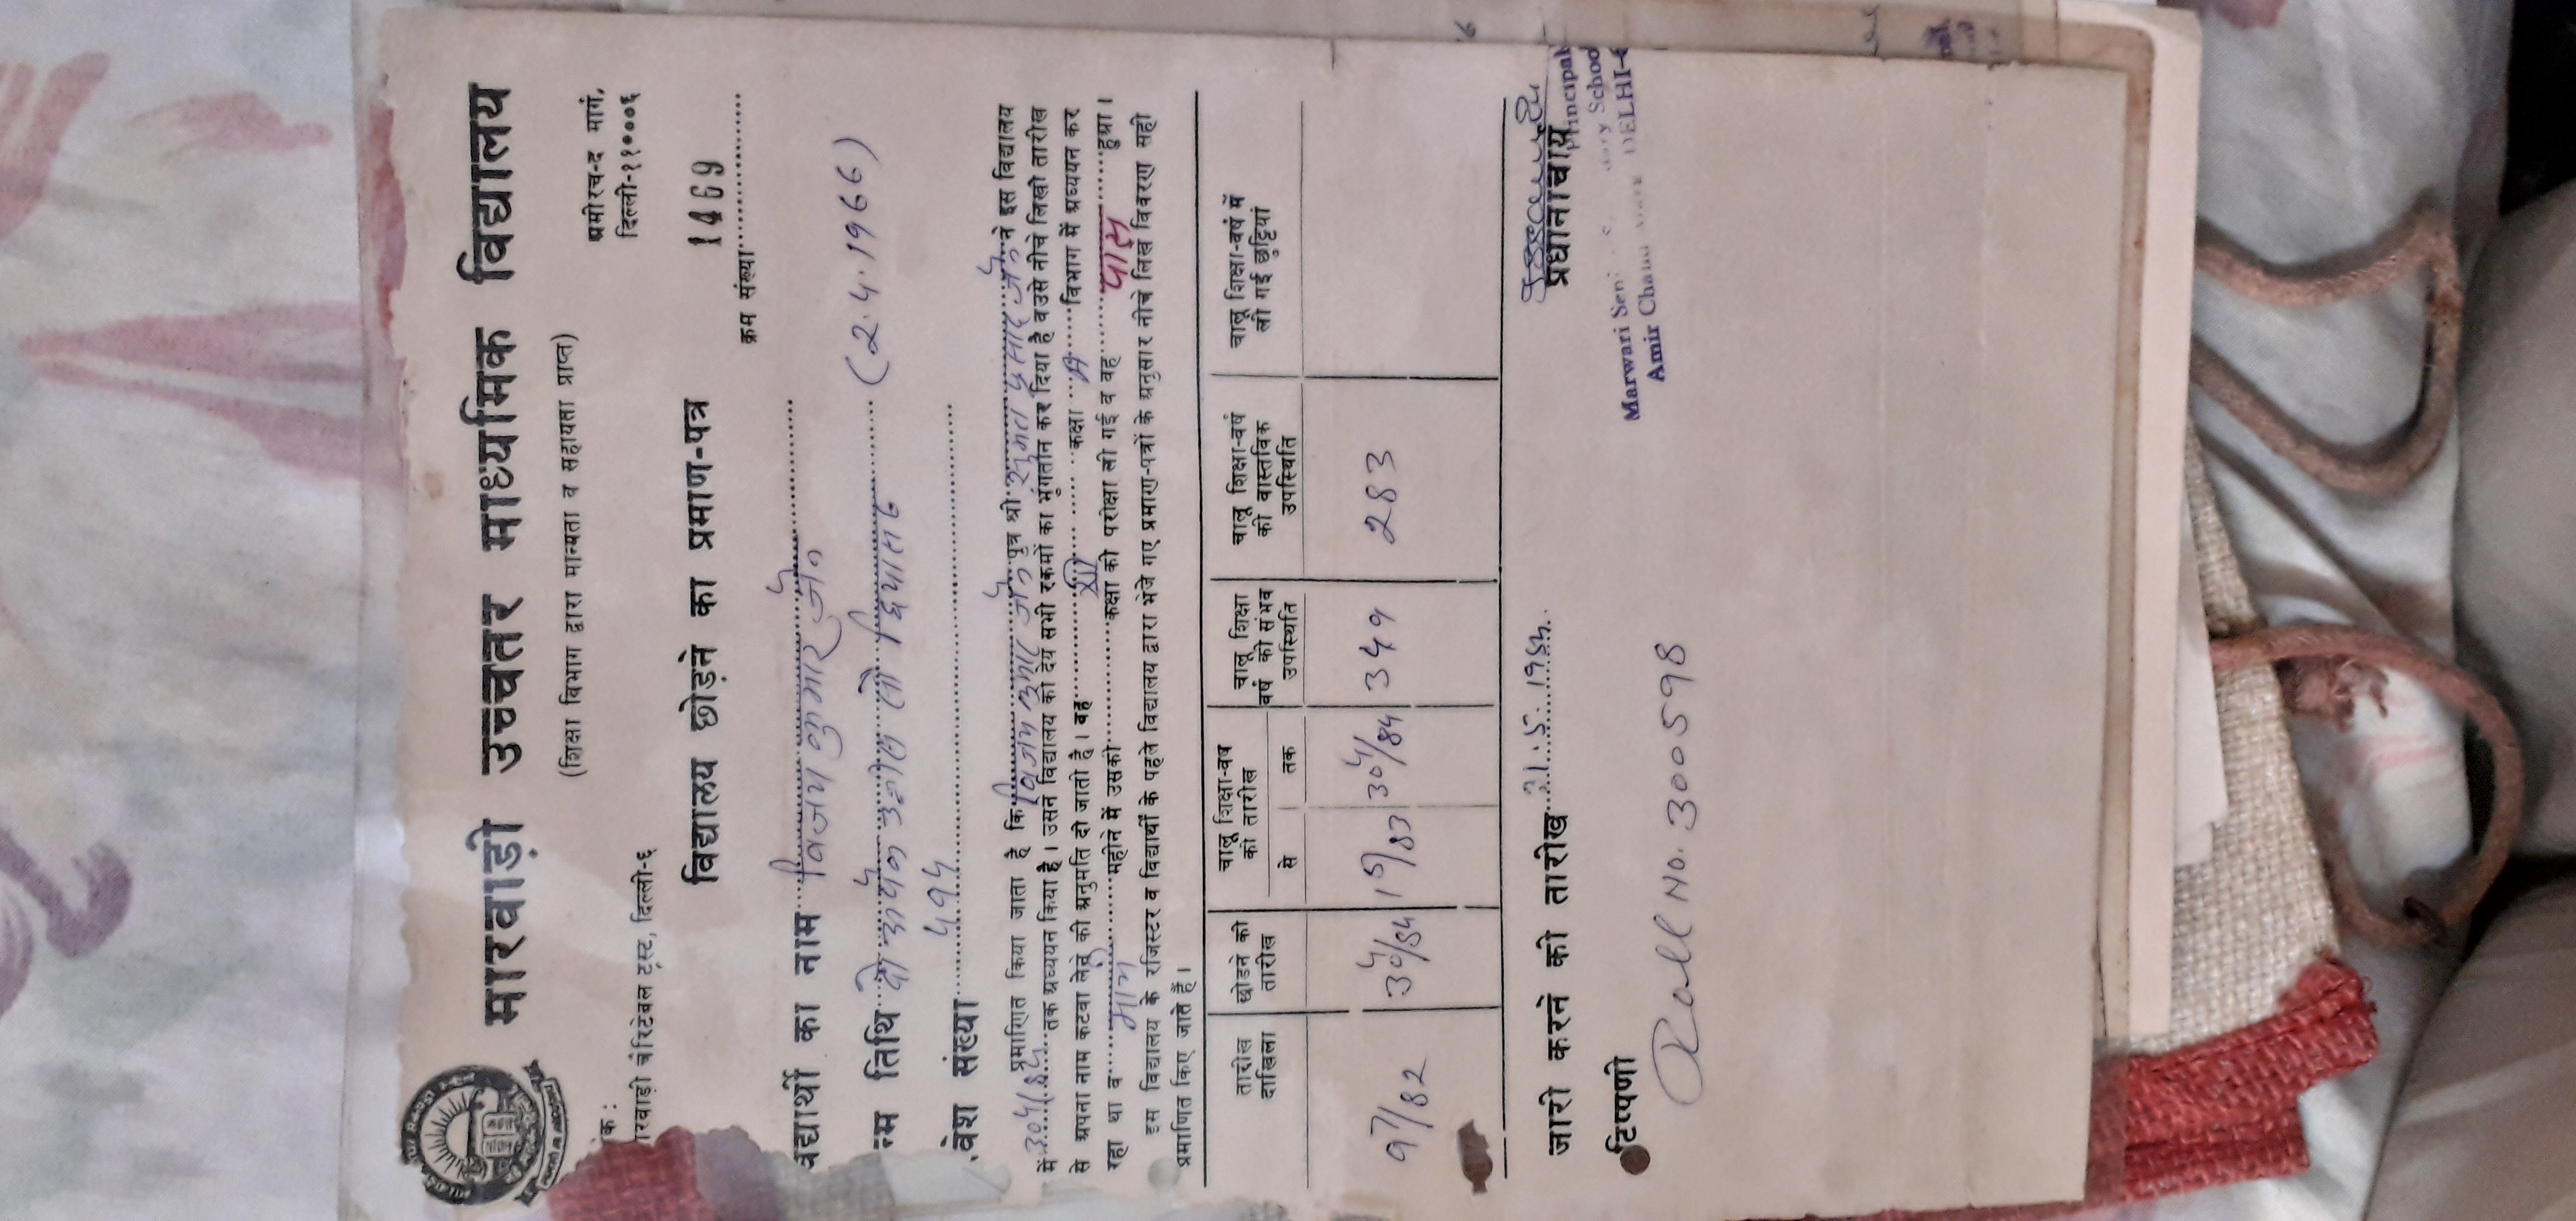 मारवाड़ी उच्चतर माध्यमिक विद्यालय
(शिक्षा विभाग द्वारा मान्यता व सहायता प्राप्त)
अमीरचन्द मार्ग,
दिल्ली-११०००६
मारवाड़ी चैरिटेबल ट्रस्ट, दिल्ली-६
विद्यालय छोड़ने का प्रमाण-पत्र
1469
क्रम संख्या
विद्यार्थी का नाम विजय कुमार
जन्म तिथि दो अप्रैल उन्नीस सौ छियासठ (2.4.1966)
प्रवेश संख्या ५९५
प्रमाणित किया जाता है कि विजय कुमार पुत्र श्री प्रसाद ने इस विद्यालय
में 30/4/84 तक अध्ययन किया है। उसने विद्यालय को देय सभी रकमों का भुगतान कर दिया है व उसे नीचे लिखी तारीख
से अपना नाम कटवा लेने की अनुमति दी जाती है। वह XII कक्षा A विभाग में अध्ययन कर
रहा था व मार्च महीने में उसकी कक्षा की परीक्षा ली गई व वह पास हुआ।
इस विद्यालय के रजिस्टर व विद्यार्थी के पहले विद्यालय द्वारा भेजे गए प्रमाण-पत्रों के अनुसार नीचे लिखे विवरण सही
प्रमाणित किए जाते हैं।
तारीख दाखिला
छोडने की तारीख
चालू शिक्षा-वर्ष की तारीख
से
तक
चालू शिक्षा वर्ष की संभव उपस्थिति
चालू शिक्षा-वर्ष की वास्तविक उपस्थिति
चालू शिक्षा-वर्ष में ली गई छुट्टियां
9/7/82 30/4/84 1/5/83 30/4/84 349 283
जारी करने की तारीख 21.5.1984
प्रधानाचार्य
Principal
Marwari Sen School
Amir Chand DELHI-6
टिप्पणी
Roll No. 3005798